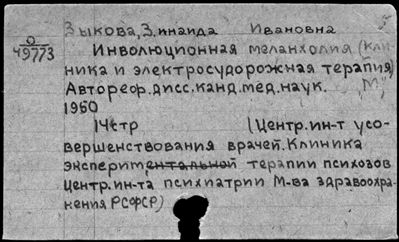 Зыкова, Зинаида Ивановна
О
49773
Инволюционная меланхолия (кли-
ника и электросудорожная терапия)
Автореф. дисс. канд. мед. наук. М,
1950
14стр (Центр. ин-т усо-
вершенствования врачей. Клиника
экспериментальной терапии психозов
Центр. ин-та психиатрии М-ва здравоохра-
нения РСФСР)